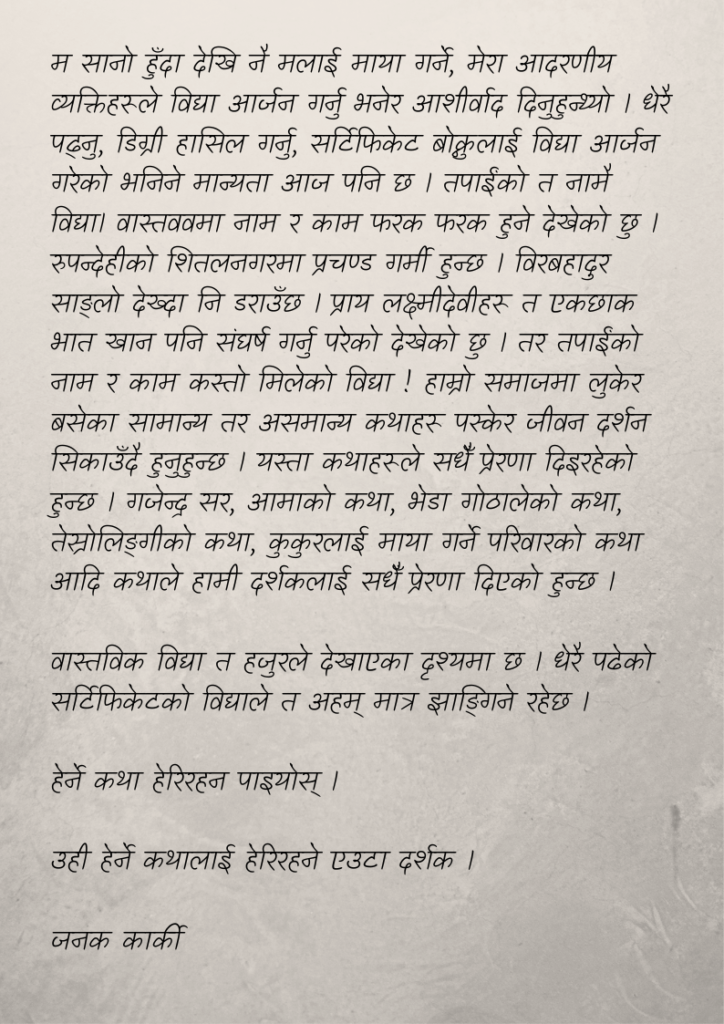 म सानो हुँदा देखि नै मलाई माया गर्ने, मेरा आदरणीय
व्यक्तिहरुले विद्या आर्जन गर्नु भनेर आशीर्वाद दिनुहुन्थ्यो । धेरै
पढ्नु, डिग्री हासिल गर्नु, सर्टिफिकेट बोक्नुलाई विद्या आर्जन
गरेको भनिने मान्यता आज पनि छ । तपाईंको त नामै
विद्या। वास्तववमा नाम र काम फरक फरक हुने देखेको छु ।
रुपन्देहीको शितलनगरमा प्रचण्ड गर्मी हुन्छ । विरबहादुर
साङ्लो देख्दा नि डराउँछ । प्राय लक्ष्मीदेवीहरू त एकछाक
भात खान पनि संघर्ष गर्नु परेको देखेको छु । तर तपाईंको
नाम र काम कस्तो मिलेको विद्या ! हाम्रो समाजमा लुकेर
बसेका सामान्य तर असमान्य कथाहरू पस्केर जीवन दर्शन
सिकाउँदै हुनुहुन्छ । यस्ता कथाहरुले सधैँ प्रेरणा दिइरहेको
हुन्छ । गजेन्द्र सर, आमाको कथा, भेडा गोठालेको कथा,
तेस्रोलिङ्गीको कथा, कुकुरलाई माया गर्ने परिवारको कथा
आदि कथाले हामी दर्शकलाई सधैँ प्रेरणा दिएको हुन्छ ।
वास्तविक विद्या त हजुरले देखाएका दृश्यमा छ । धेरै पढेको
सर्टिफिकेटको विद्याले त अहम् मात्र झाङ्गिने रहेछ ।
हेर्ने कथा हेरिरहन पाइयोस् ।
उही हेर्ने कथालाई हेरिरहने एउटा दर्शक ।
जनक कार्की